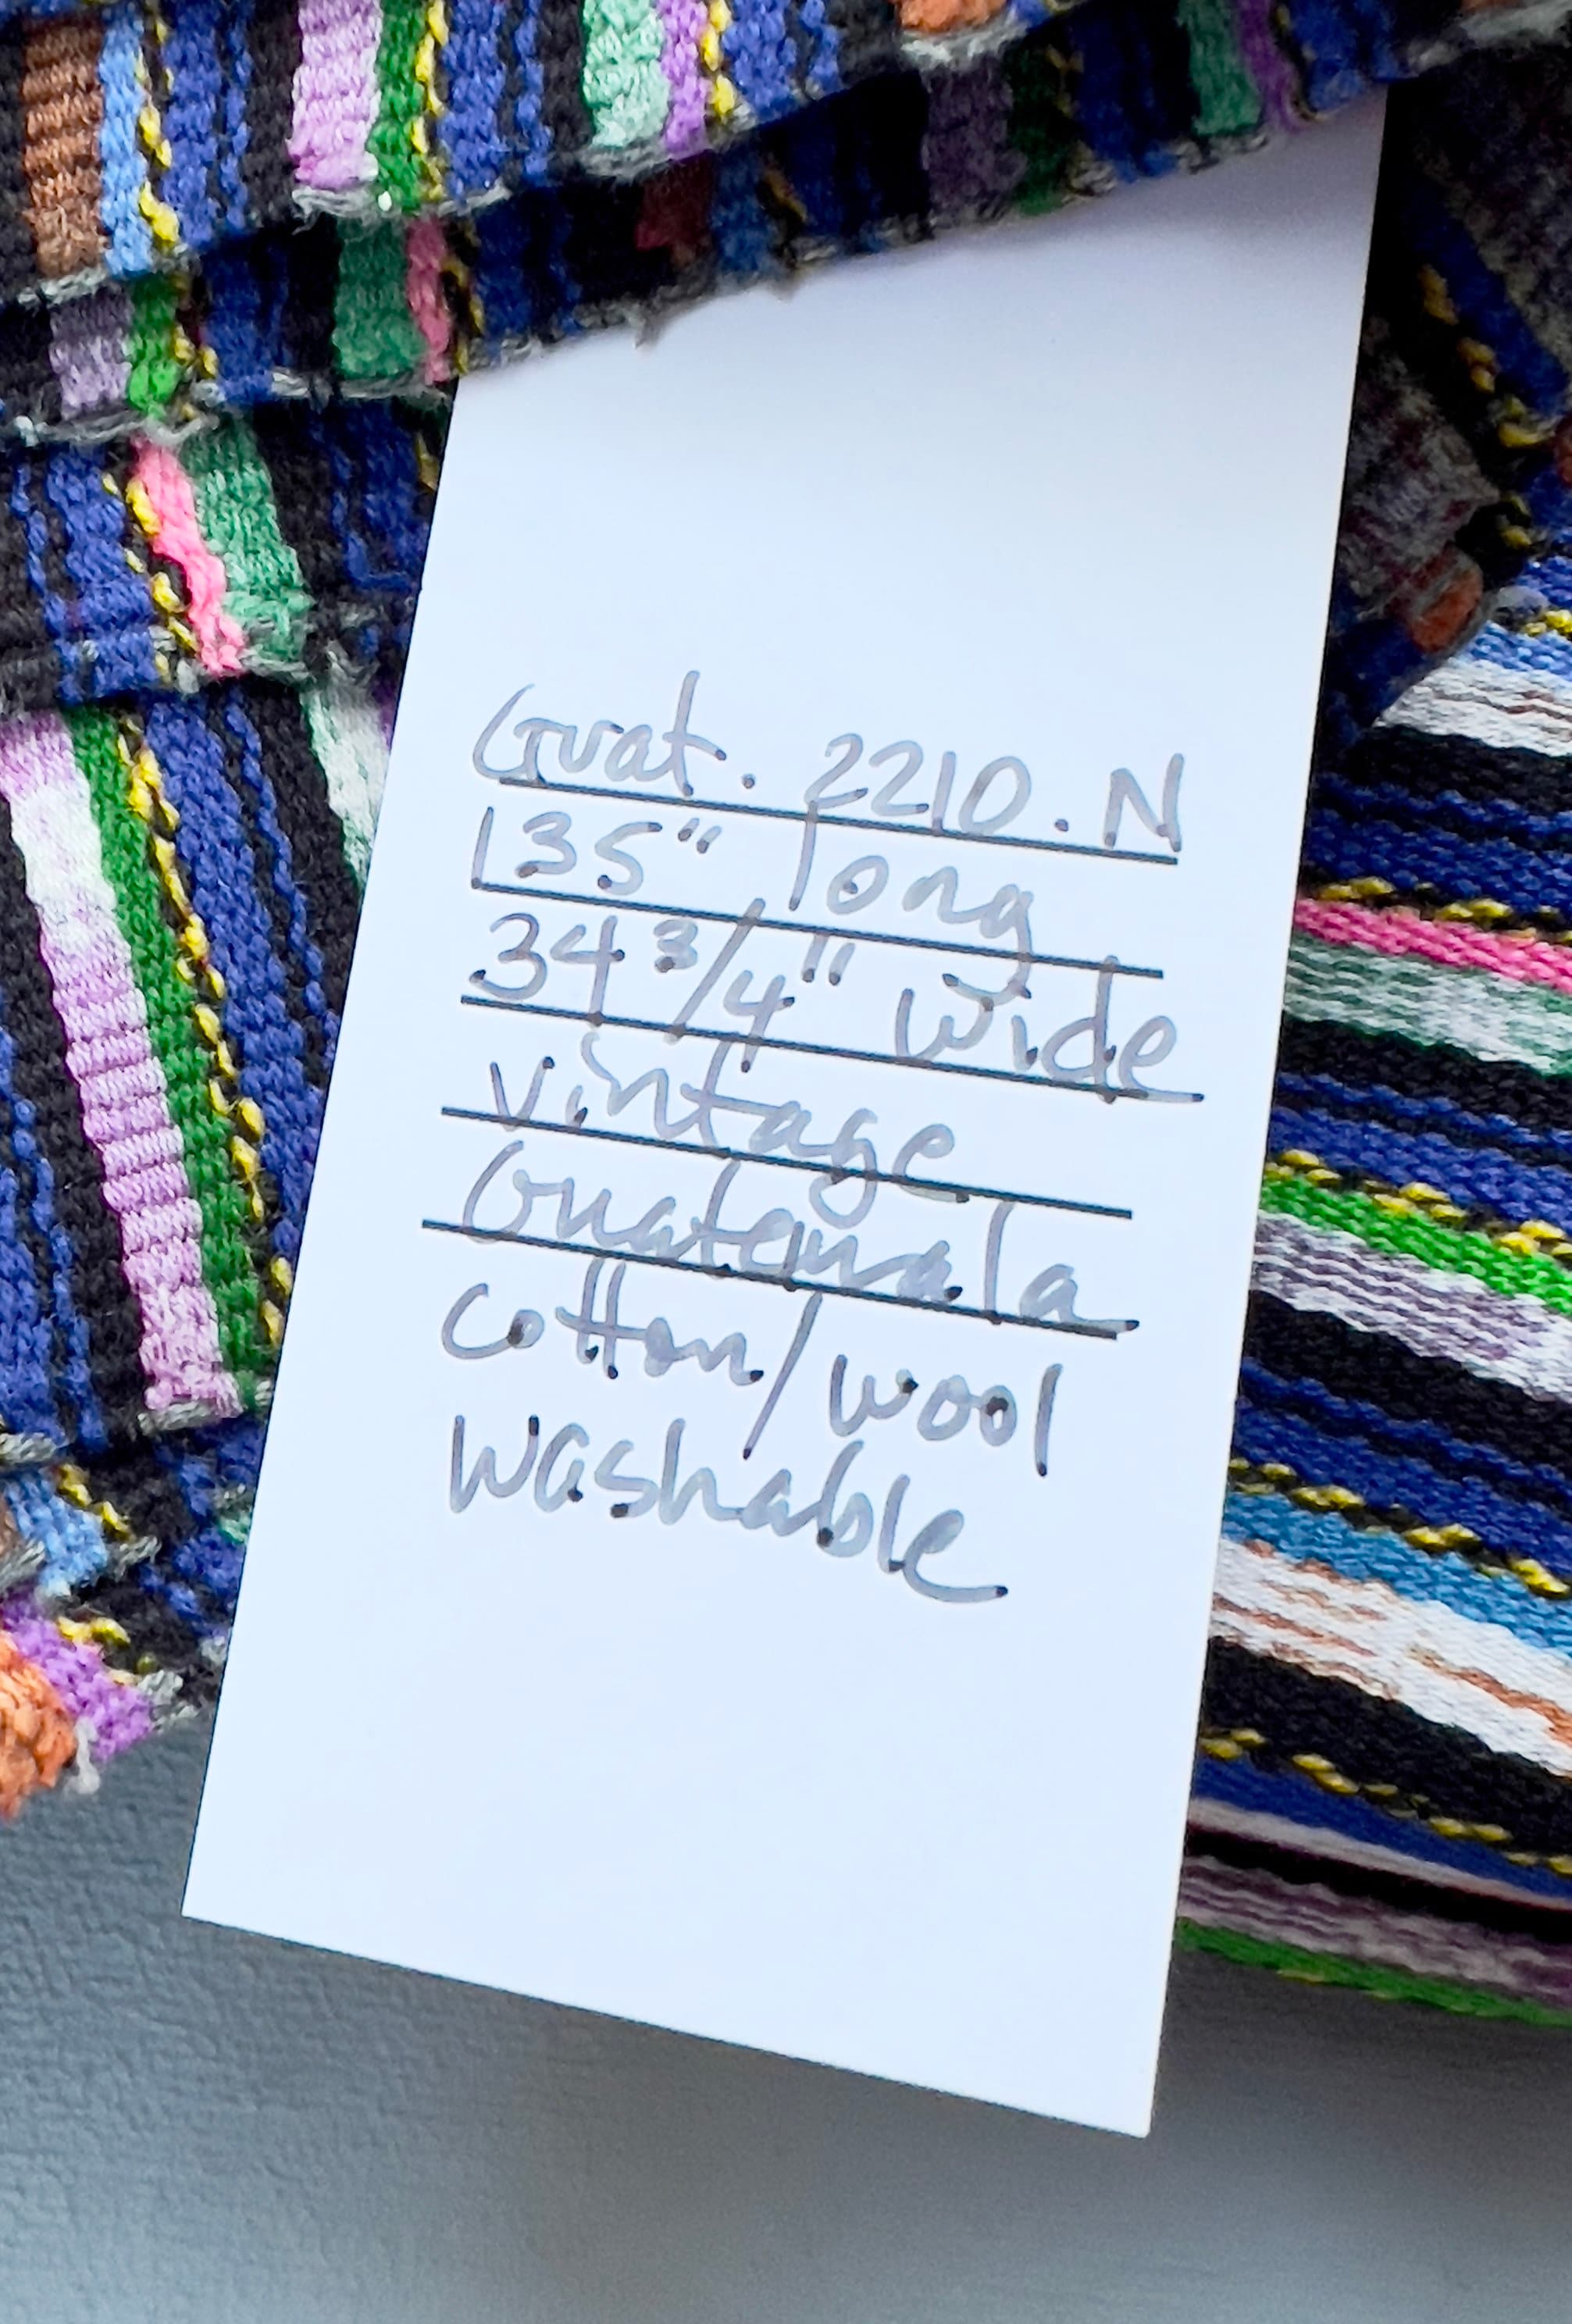 Guat. 2210.N
135" long
34 3/4" wide
vintage
Guatemala
cotton/wool
washable